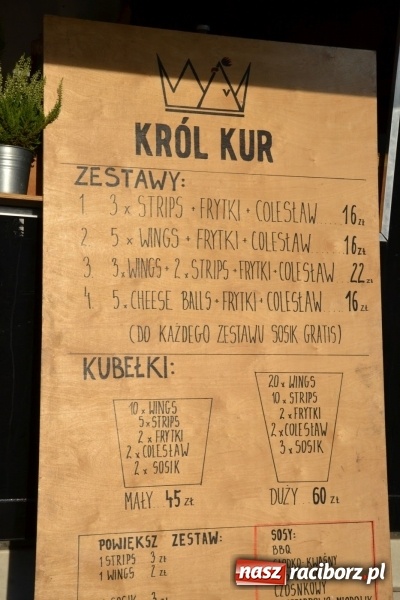 KRÓL KUR
ZESTAWY:
1. 3x STRIPS + FRYTKI + COLESŁAW 16 zł
2. 5x WINGS + FRYTKI + COLESŁAW 16 zł
3. 3x WINGS + 2x STRIPS + FRYTKI + COLESŁAW 22 zł
4. 5x CHEESE BALLS + FRYTKI + COLESŁAW 16 zł
(DO KAŻDEGO ZESTAWU SOSIK GRATIS)
KUBEŁKI:
10x WINGS
5x STRIPS
2x FRYTKI
2x COLESŁAW
2x SOSIK
MAŁY 45 zł
20x WINGS
10x STRIPS
2x FRYTKI
2x COLESŁAW
3x SOSIK
DUŻY 60 zł
POWIĘKSZ ZESTAW:
1 STRIPS 3 zł
1 WINGS 2 zł
SOSY:
BBQ
CZOSNKOWY
nasz raciborz.pl